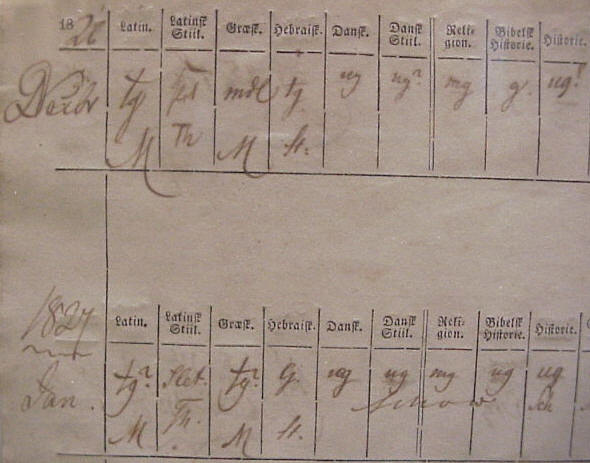 1826 Latin. Latinsk Stiil. Græsk. Hebraisk. Dansk. Dansk Stiil. Religion. Bibelsk Historie. Historie.
Decbr tg mdl tg ug ug? mg g. ug?
M Th M H.
1827 Latin. Latinsk Stiil. Græsk. Hebraisk. Dansk. Dansk Stiil. Religion. Bibelsk Historie. Historie.
Jan. tg? Slet. tg? G. ug ug mg ug ug
M Th. M H.